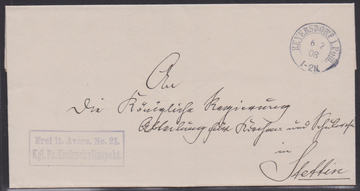 BEYERSDORF i. POM.
6 2
08
1-2N.
An
Die Königliche Regierung
Abteilung für Kirchen und Schulwesen
in
Stettin
Frei lt. Avers. No. 21.
Kgl. Pr.